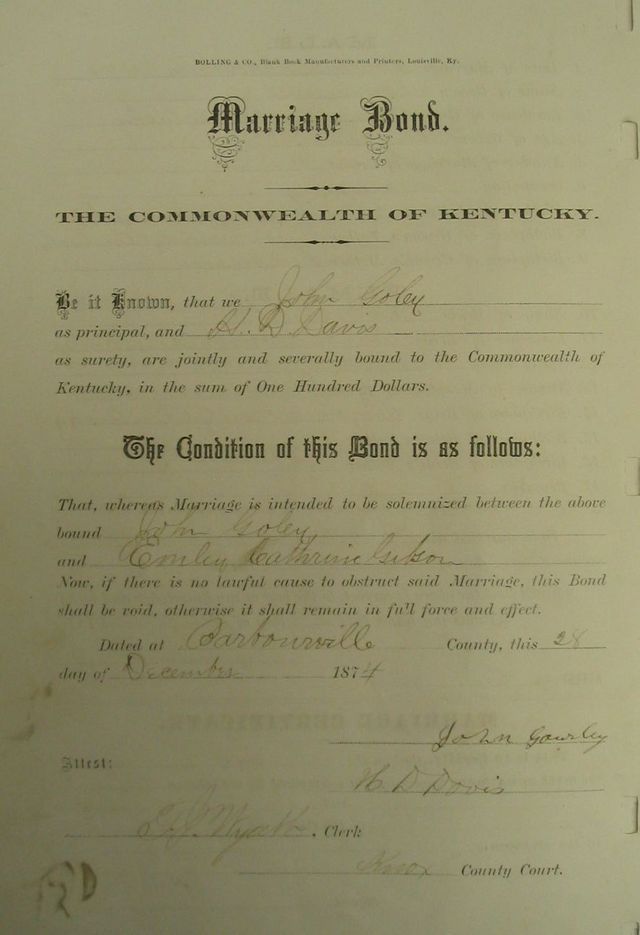 BOLLING & CO., Blank Book Manufacturers and Printers, Louisville, Ky.
Marriage Bond.
THE COMMONWEALTH OF KENTUCKY.
Be it Known, that we John Goley
as principal, and H. D. Davis
as surety, are jointly and severally bound to the Commonwealth of
Kentucky, in the sum of One Hundred Dollars.
The Condition of this Bond is as follows:
That, whereas Marriage is intended to be solemnized between the above
bound John Goley
and Emley Cathrine Gibson
Now, if there is no lawful cause to obstruct said Marriage, this Bond
shall be void, otherwise it shall remain in full force and effect.
Dated at Barbourville County, this 28
day of December 1874
John Gowley
Attest: H D Davis
Wyatt, Clerk
Knox County Court.